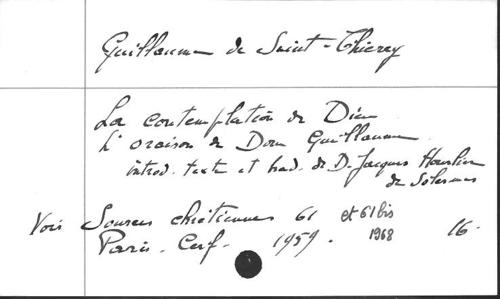 Guillaume de Saint-Thierry
La contemplation de Dieu
L'oraison de Dom Guillaume.
introd. texte et trad. de D. Jacques Hourlier
de Solesmes
Voir Sources chrétiennes 61 et 61 bis
Paris. Cerf. 1959. 1968 16.